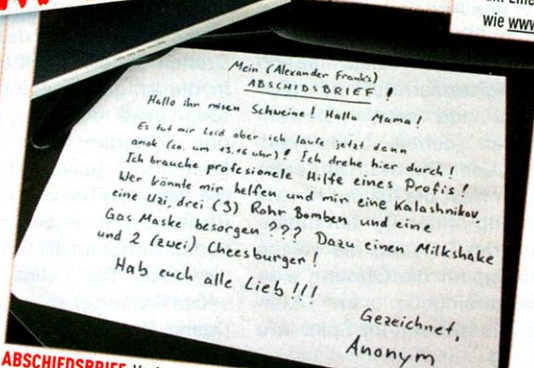 wie www
Mein (Alexander Frank's)
ABSCHIDSBRIEF!
Hallo ihr misen Schweine! Hallo Mama!
Es tut mir Leid aber ich laufe jetzt dann
amok (ca. um 13.16 uhr)! Ich drehe hier durch!
Ich brauche profesionele Hilfe eines Profis!
Wer könnte mir helfen und mir eine Kalashnikov,
eine Uzi, drei (3) Rohr Bomben und eine
Gas Maske besorgen??? Dazu einen Milkshake
und 2 (zwei) Cheesburger!
Hab euch alle Lieb!!!
Gezeichnet,
Anonym
ABSCHIEDSBRIEF